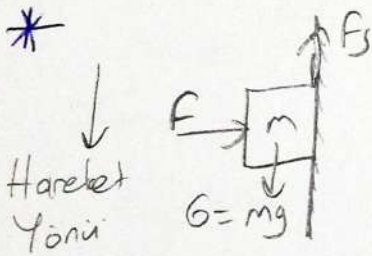 *
Fs
F
m
Hareket
Yönü
G= mg